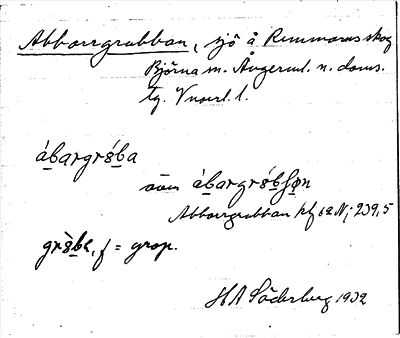 Abborrgrubban, sjö å Remmarns skog
Björna sn. Ångerml. n. doms.
tg. Vnorrl. l.
ábargrǿba
även ábargrǿbʃøn
Abborrgrubban kbl 62 Nj 239,5
grǿba, f = grop.
HA Söderberg 1932